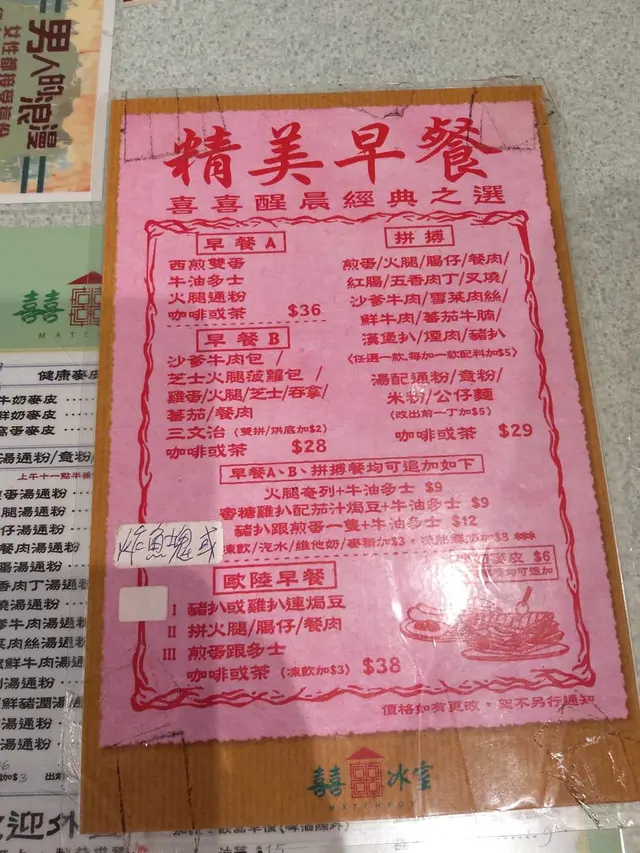 男人的浪漫
女性都接受
精美早餐
喜喜醒晨經典之選
早餐A
西煎雙蛋
牛油多士
火腿通粉
咖啡或茶 $36
早餐B
沙爹牛肉包 /
芝士火腿菠蘿包 /
雞蛋/火腿/芝士/吞拿/
蕃茄/餐肉
三文治 (雙拼/烘底加$2)
咖啡或茶 $28
拼搏
煎蛋/火腿/腸仔/餐肉/
紅腸/五香肉丁/叉燒/
沙爹牛肉/雪菜肉絲/
鮮牛肉/蕃茄牛腩/
漢堡扒/煙肉/豬扒
(任選一款,每加一款配料加$5)
湯配通粉/意粉/
米粉/公仔麵
(改出前一丁加$5)
咖啡或茶 $29
早餐A、B、拼搏餐均可追加如下
火腿奄列+牛油多士 $9
蜜糖雞扒配茄汁焗豆+牛油多士 $9
豬扒跟煎蛋一隻+牛油多士 $12
凍飲/汽水/維他奶/麥精加$3
鮮奶加$8
麥皮 $6
均可追加
炸魚塊或
歐陸早餐
I 豬扒或雞扒連焗豆
II 拼火腿/腸仔/餐肉
III 煎蛋跟多士
咖啡或茶 (凍飲加$3) $38
價格如有更改，恕不另行通知
囍囍冰室
MATCHBOX
囍囍
MATCH
健康麥皮
牛奶麥皮
鮮奶麥皮
窩蛋麥皮
湯通粉/意粉/
上午十一點半後
煎蛋湯通粉
腿湯通粉
仔湯通粉
餐肉湯通粉
香肉丁湯通粉
燒湯通粉
爹牛肉湯通粉
菜肉絲湯通粉
鮮牛肉湯通
湯通粉
鮮豬潤湯通
湯通粉
湯通粉
加$3
迎外
油菜 $15